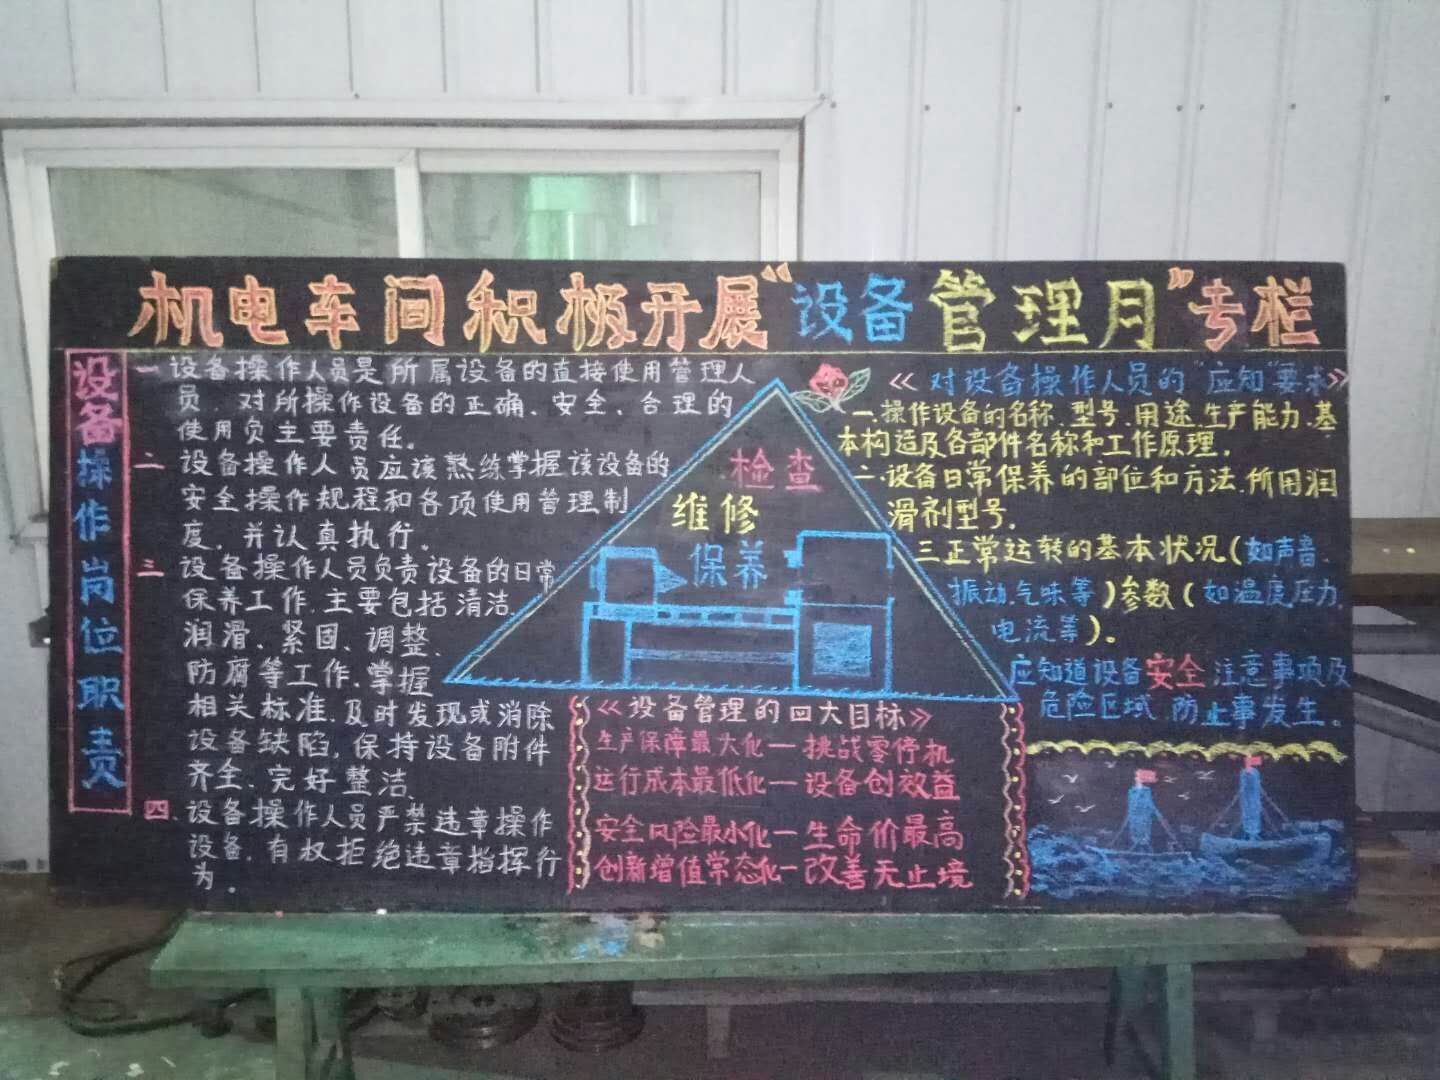 机电车间积极开展“设备管理月”专栏
设备操作岗位职责
一 设备操作人员是所属设备的直接使用管理人
员．对所操作设备的正确、安全、合理的
使用负主要责任。
二 设备操作人员应该熟练掌握该设备的
安全操作规程和各项使用管理制
度．并认真执行。
三 设备操作人员负责设备的日常
保养工作．主要包括清洁、
润滑、紧固、调整、
防腐等工作．掌握
相关标准．及时发现或消除
设备缺陷，保持设备附件
齐全、完好整洁．
四．设备操作人员严禁违章操作
设备．有权拒绝违章指挥行
为。
检查
维修
保养
《设备管理的四大目标》
生产保障最大化一挑战零停机
运行成本最低化一设备创效益
安全风险最小化一生命价最高
创新增值常态化一改善无止境
《对设备操作人员的“应知”要求》
一．操作设备的名称．型号．用途．生产能力．基
本构造及各部件名称和工作原理．
二．设备日常保养的部位和方法．所用润
滑剂型号．
三正常运转的基本状况（如声音．
振动．气味等）参数（如温度压力．
电流等）。
应知道设备安全注意事项及
危险区域 防止事发生。